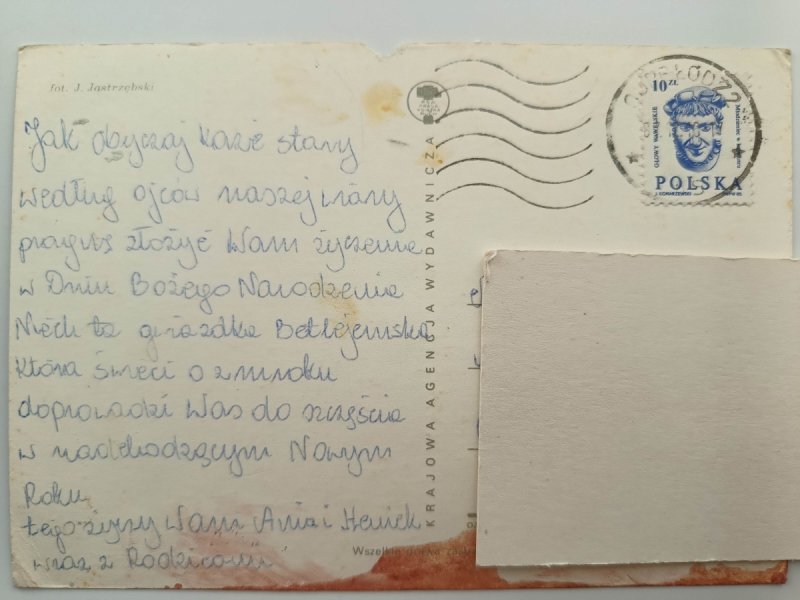 fot. J. Jastrzębski
Jak obyczaj każe stary
według ojców naszej wiary
pragnę złożyć Wam życzenia
w Dniu Bożego Narodzenia
Niech ta gwiazdka Betlejemska
która świeci o zmroku
doprowadzi Was do szczęścia
w nadchodzącym Nowym
Roku
tego życzy Wam Ania i Heniek
wraz z Rodzicami
KRAJOWA AGENCJA WYDAWNICZA
Wszelkie prawa
10 ZŁ
GŁOWY WAWELSKIE
POLSKA
ŁÓDŹ 2